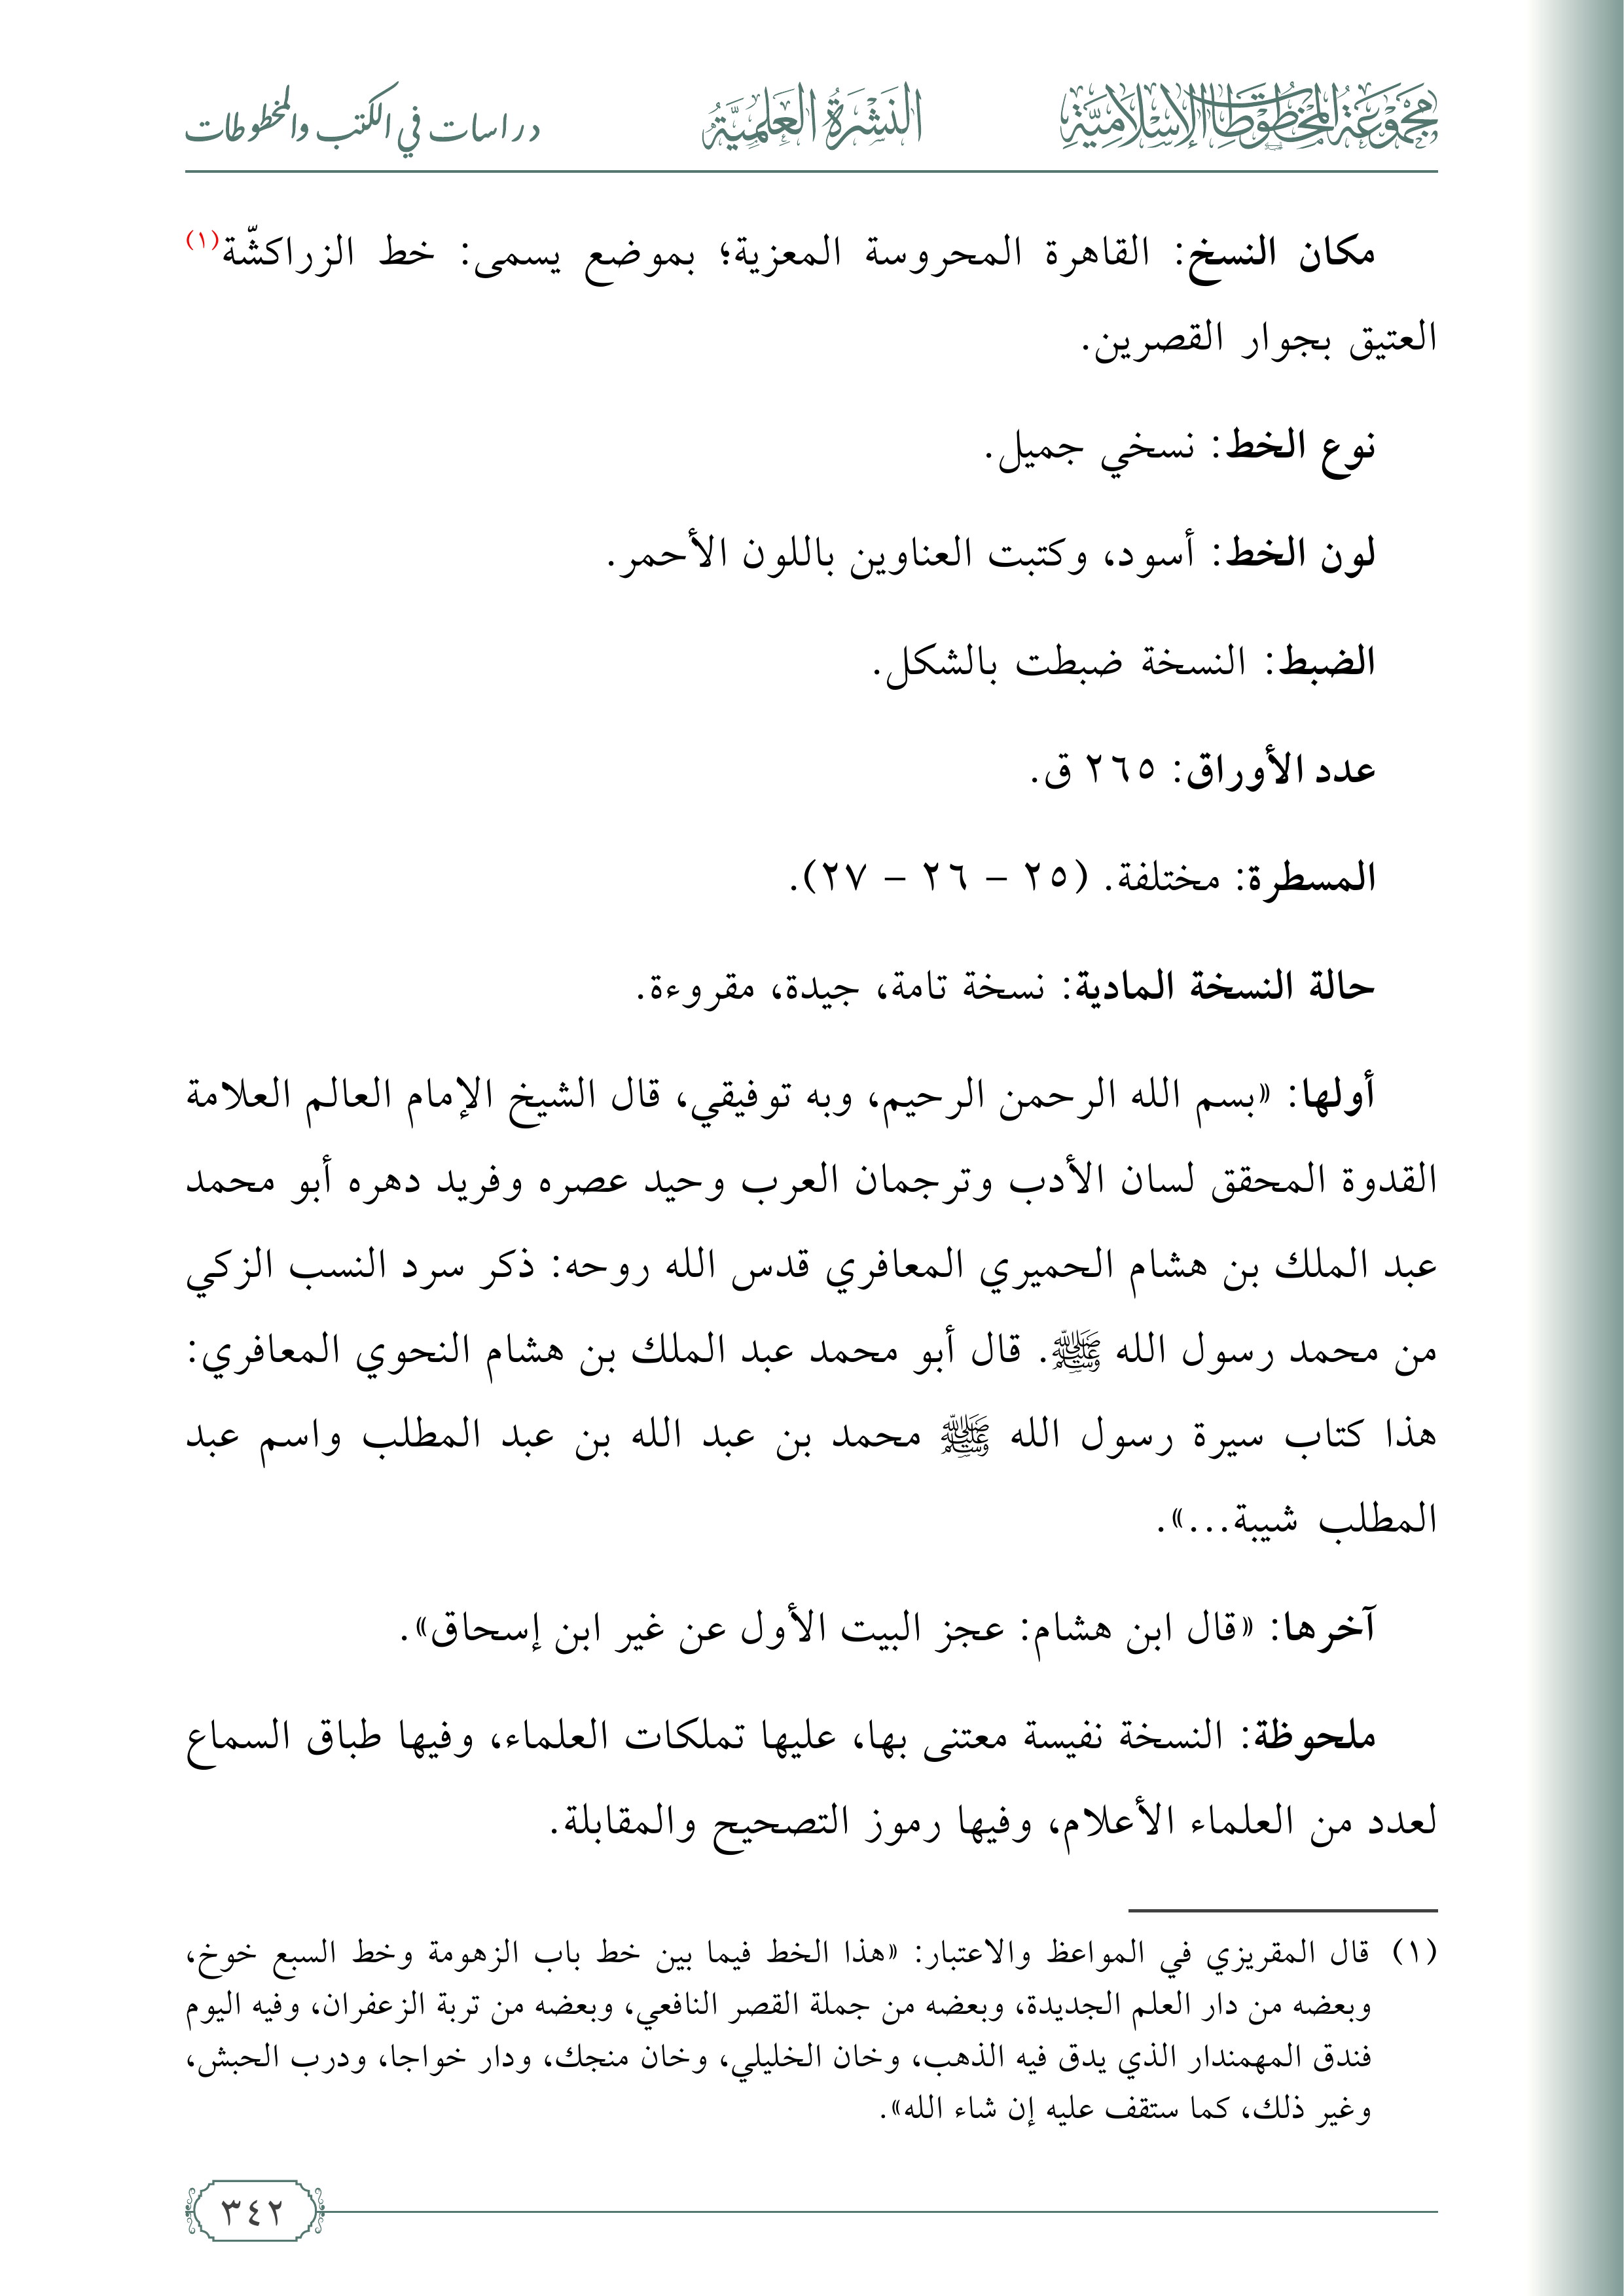 مجموعة المخطوطات الإسلامية
النشرة العلمية
دراسات في الكتب والمخطوطات
مكان النسخ: القاهرة المحروسة المعزية؛ بموضع يسمى: خط الزراكشّة(١)
العتيق بجوار القصرين.
نوع الخط: نسخي جميل.
لون الخط: أسود، وكتبت العناوين باللون الأحمر.
الضبط: النسخة ضبطت بالشكل.
عدد الأوراق: ٢٦٥ ق.
المسطرة: مختلفة. (٢٥ – ٢٦ – ٢٧).
حالة النسخة المادية: نسخة تامة، جيدة، مقروءة.
أولها: «بسم الله الرحمن الرحيم، وبه توفيقي، قال الشيخ الإمام العالم العلامة
القدوة المحقق لسان الأدب وترجمان العرب وحيد عصره وفريد دهره أبو محمد
عبد الملك بن هشام الحميري المعافري قدس الله روحه: ذكر سرد النسب الزكي
من محمد رسول الله ﷺ. قال أبو محمد عبد الملك بن هشام النحوي المعافري:
هذا كتاب سيرة رسول الله ﷺ محمد بن عبد الله بن عبد المطلب واسم عبد
المطلب شيبة...».
آخرها: «قال ابن هشام: عجز البيت الأول عن غير ابن إسحاق».
ملحوظة: النسخة نفيسة معتنى بها، عليها تملكات العلماء، وفيها طباق السماع
لعدد من العلماء الأعلام، وفيها رموز التصحيح والمقابلة.
(١) قال المقريزي في المواعظ والاعتبار: «هذا الخط فيما بين خط باب الزهومة وخط السبع خوخ،
وبعضه من دار العلم الجديدة، وبعضه من جملة القصر النافعي، وبعضه من تربة الزعفران، وفيه اليوم
فندق المهمندار الذي يدق فيه الذهب، وخان الخليلي، وخان منجك، ودار خواجا، ودرب الحبش،
وغير ذلك، كما ستقف عليه إن شاء الله».
٣٤٢